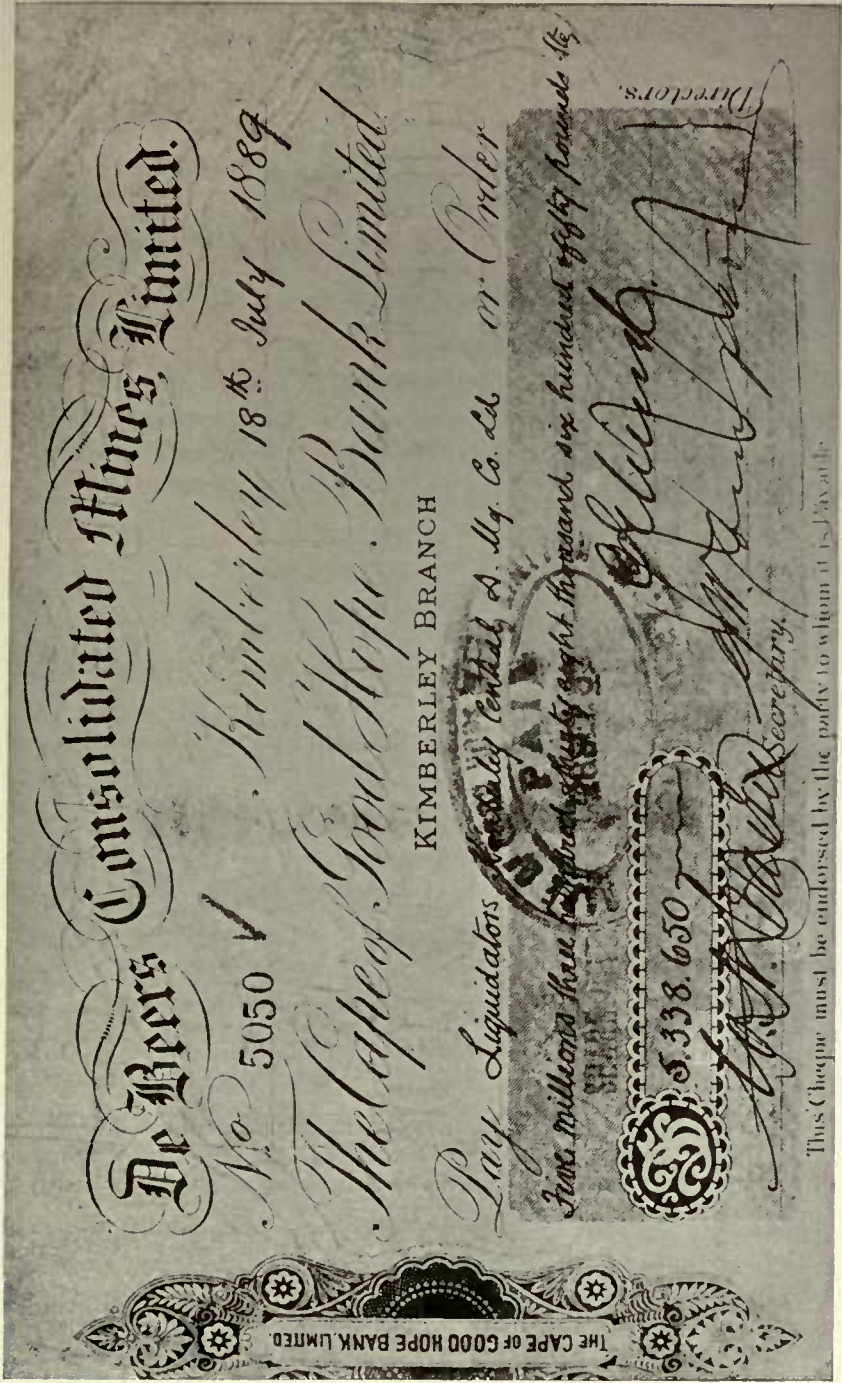 THE CAPE OF GOOD HOPE BANK, LIMITED.
De Beers Consolidated Mines, Limited.
No 5050 Kimberley 18th July 1889
The Cape of Good Hope Bank Limited.
KIMBERLEY BRANCH
Pay Liquidators Kimberley Central D. Mg. Co. Ld. or Order
Five millions three hundred & thirty eight thousand six hundred & fifty pounds Stg
5.338.650
PAID
Directors.
Secretary.
This Cheque must be endorsed by the party to whom it is Payable